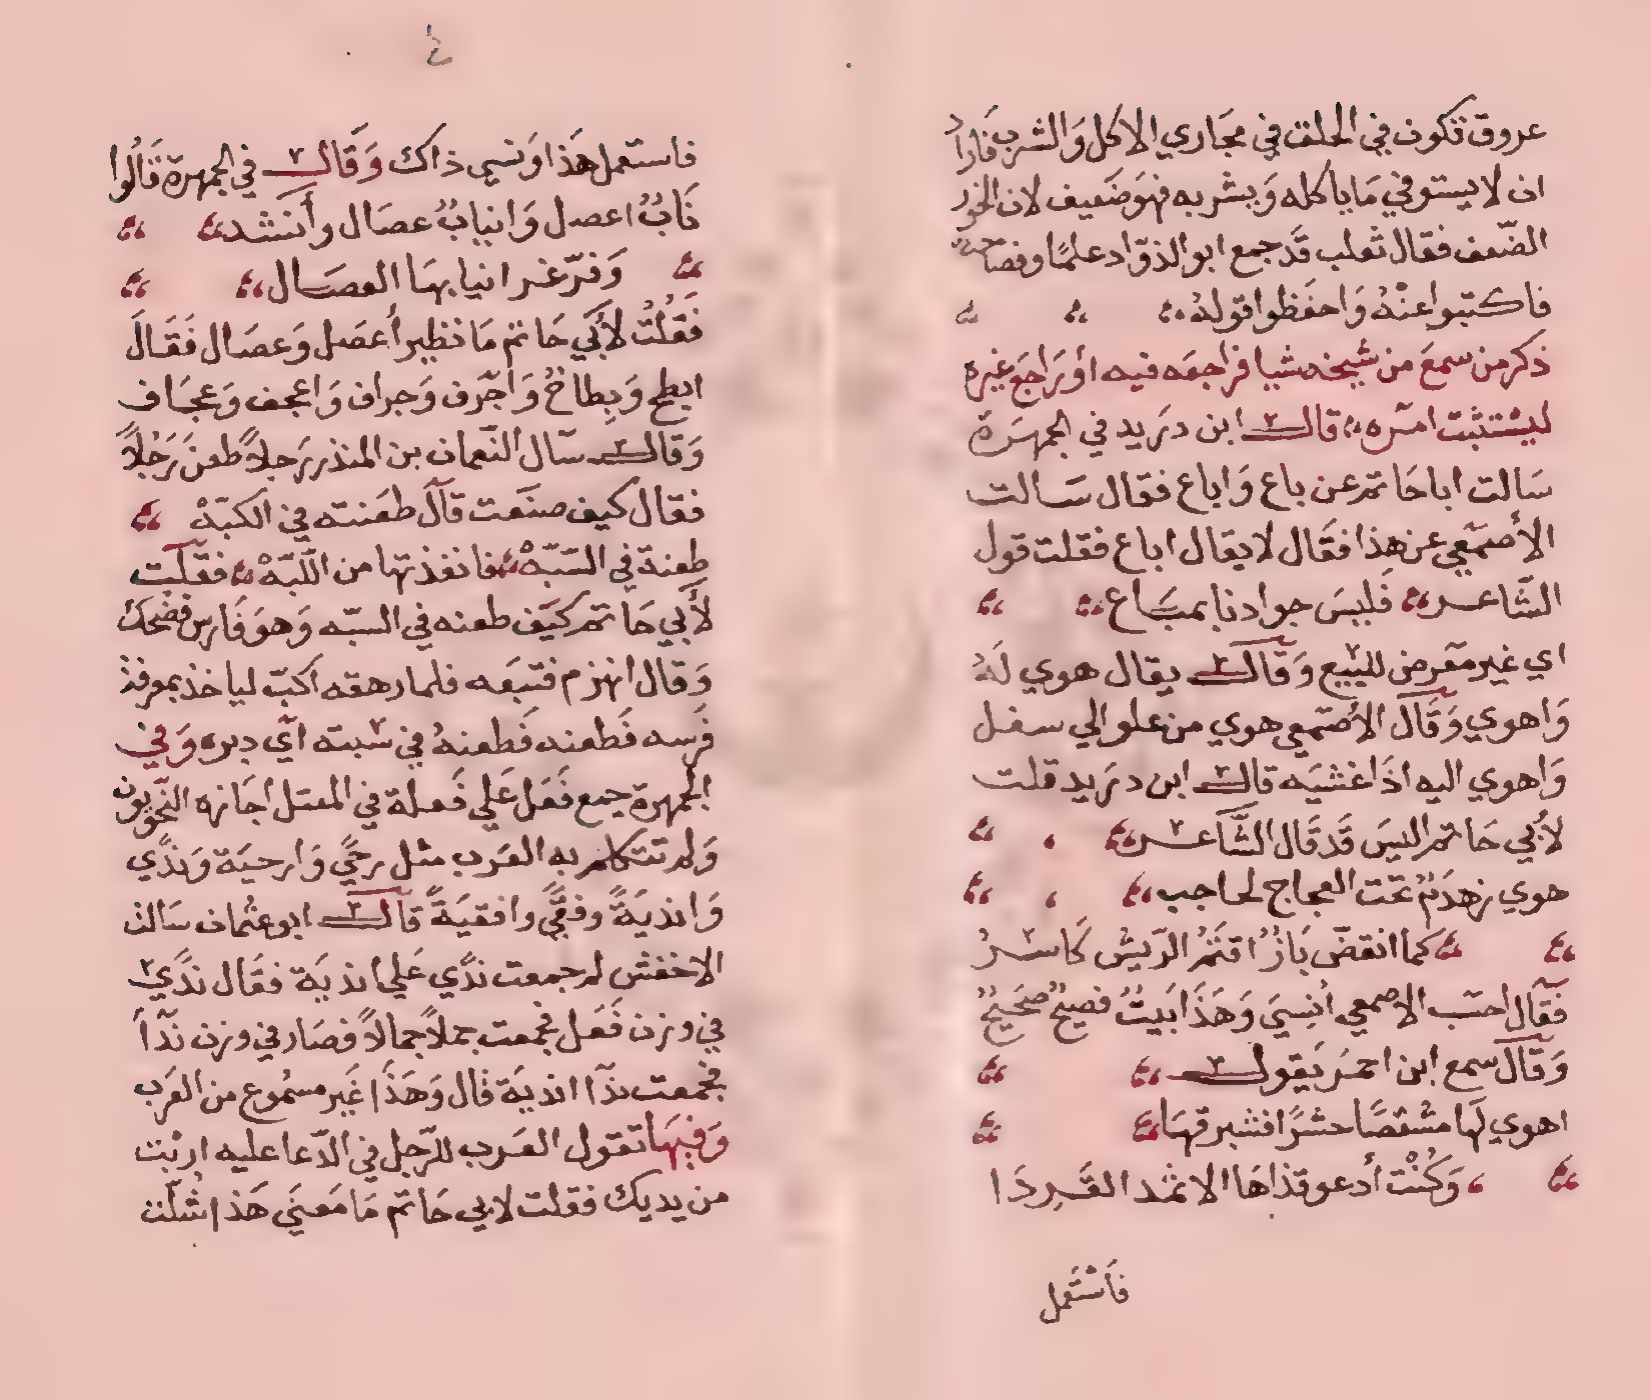 عروق تكون في الحلق في مجاري الاكل وَالشرب فارَاد
ان لا يستوفي مَا ياكله وَيشربه فهوَ ضَعيف لان الخور
الضّعف فقال ثعلب قَد جمع ابو الذوّاد علمًا وفصَاحة
فاكتبوا عنْهُ وَاحفَظوا قولهُ
ذكر من سمعَ من شيخه شيا فراجعَه فيه اوْ رَاجَع غيره
ليسْتثبت امرَه قال ابن دريد في الجمهرَة
سَالت ابا حَاتم عن باع وَاباع فقال سَالت
الأصمَعي عن هذا فقَال لا يقال اباع فقلت قول
الشّاعر فَليسَ جوادنا بمبَاع
اي غير معَرض للبيع وَقال يقال هوي لَهُ
وَاهوي وَقَال الأصمَعي هوي من علو الي سفل
وَاهوي اليه اذَا غشيَه قال ابن دريد قلت
لأبي حَاتم اليسَ قَد قَال الشّاعر
هوي زهدَمٌ تحت العجاج لحاجب
كما انقضّ بَازٌ اقتَمُ الرّيش كَاسرُ
فقال احسَب الاصمعي اُنسِيَ وَهَذَا بَيتٌ فصيحٌ صَحيحٌ
وَقال سمع ابن احمرَ يَقول
اهوي لَها مشْقصًا حشرًا فشبرقهَا
وَكُنْت أدعو قذاهَا الاثمد القَرِدَا
فاسْتَعمل
٤
فاستعمل هَذا وَنسي ذاك وَقَال في الجمهرة قَالُوا
نَابٌ اعصل وَانيابٌ عصَال وأنَشد
وَفرّ عن انيابهَا العصَال
فقَلُتُ لأبَي حَاتم مَا نظير أعصَل وَعصَال فَقَالَ
ابطح وَبِطاحُ وَاجرَف وَجراف وَاعجف وَعجَاف
وَقال سَال النّعمان بن المنذر رَجلاً طعنَ رَجُلاً
فقال كيف صنَعت قال طعَنته في الكَبّهْ
طعنة في السَبّهْ فانفذتها من اللَبّهْ فقلت
لأَبي حَاتم كَيف طعنه في السبّه وَهوَ فَارس فضَحك
وَقال انهزم فتبعَه فلما رهقه اكبّ لياخذ بمعرفة
فرَسه فَطعنه فَطعنهُ في سَبته اي دبره وَفي
الجمهرة جمع فَعَل عَلي فَعلة في المعتل اجَازه النّحويون
وَلم تتكلم به العَرب مثل رحًي وَارحيَة وَندًي
وَانديَةً وقفًي واقفيَةً قال ابو عثمان سَالت
الاخفش لم جمعت ندًي عَلي انديَة فقال ندًي
في وزن فَعَل فجمعت جملاً جمالاً فصَار في وزن ندَآ
فجمعت ندَآ انديَة قال وَهَذَا غَير مسمُوع من العَرب
وَفيهَا تقول العَرب للرّجل في الدّعا عليه اربْت
من يديك فقلت لابي حَاتم مَا مَعنَي هَذا شُلّت